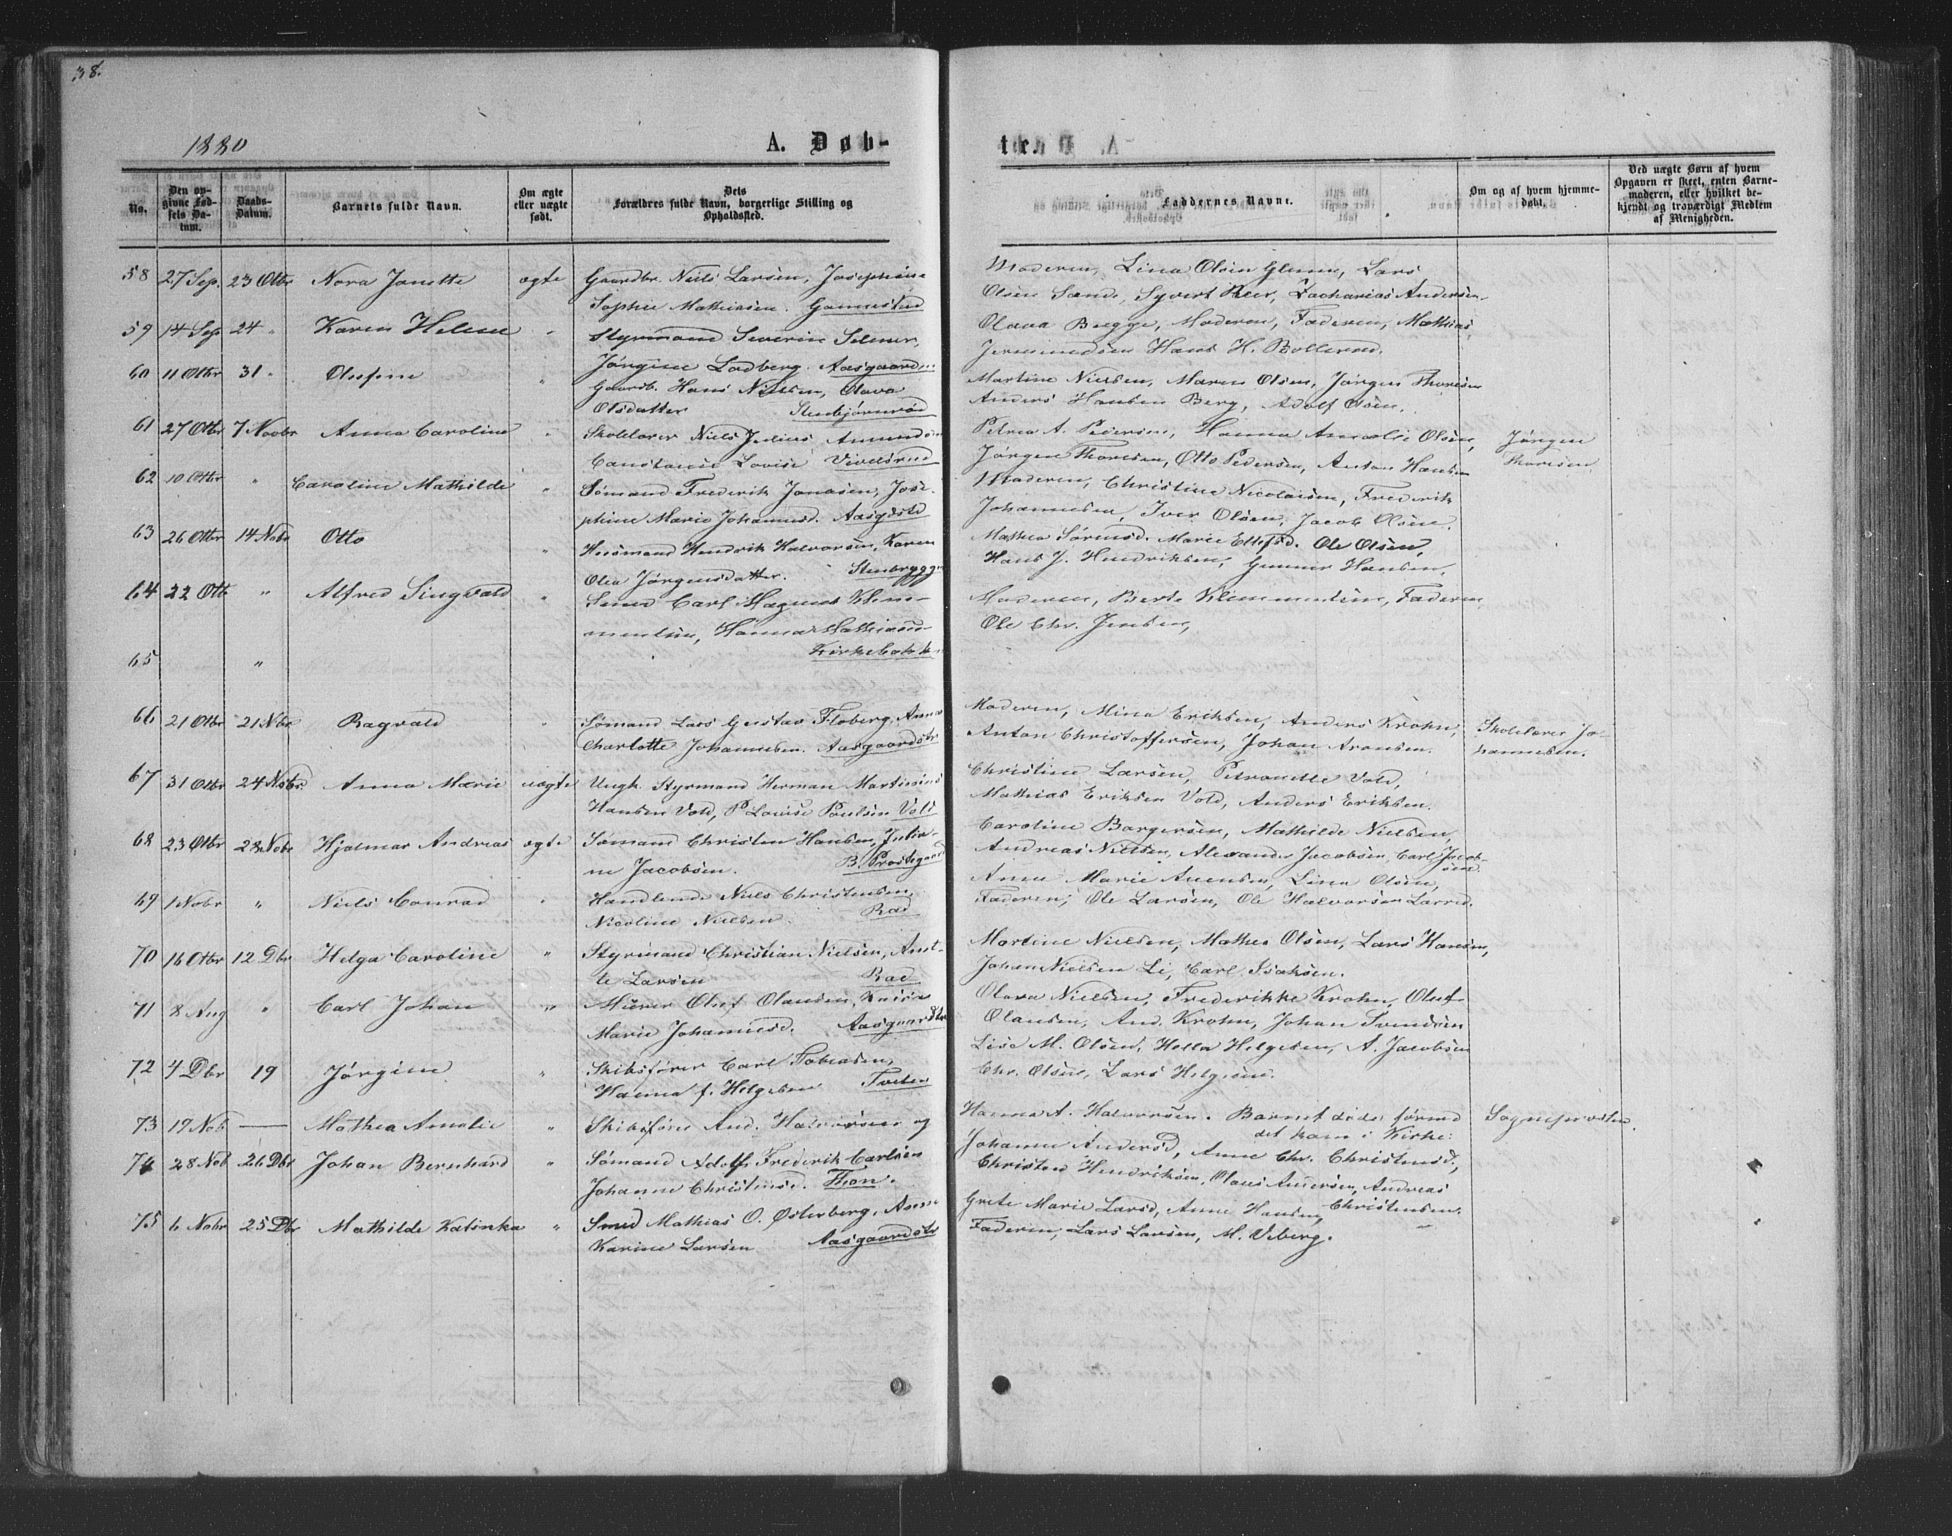 38.
1880
A. Døb-
te.
No.
Den op-
givne Fød-
sels Da-
tum.
Daabs-
Datum.
Barnets fulde Navn.
Om ægte
eller uægte
født.
Dets
Forældres fulde Navn, borgerlige Stilling og
Opholdssted.
Faddernes Navne.
Om og af hvem hjemme-
døbt.
Ved uægte Børn af hvem
Opgaven er skeet, enten Barne-
moderen, eller hvilket be-
kjendt og troværdigt Medlem
af Menigheden.
58 27 Sep. 23 Otbr Nora Janette ægte Gaardbr. Niels Larsen, Josephine
Sophie Mathiasen. Gannestad
Moderen, Lina Olsen Glenne, Lars
Olsen Sande, Syvert Reer, Zacharias Andersen
59 14 Sep 24 " Karen Helene " Styrmand Severin Selmer,
Jørgine Lodberg. Aasgaarden
Olava Bugge, Moderen, Faderen, Mathias
Hans H. Bollerød.
60 11 Otbr 31 " Olufine " Gaardb. Hans Nielsen, Olava
Olsdatter Stenbjørnrød
Martine Nielsen, Maren Olsen, Jørgen Thoresen
Anders Hansen Berg, Adolf Olsen.
61 27 Otbr 7 Novbr Anna Caroline " Skolelærer Niels Julius Amundsen
Constanse Lovise Vivelsrud
Petrea A. Pedersen, Hanna Amalie Olsen,
Jørgen Thoresen, Otto Pedersen, Anton Hansen
Jørgen
Thoresen
62 10 Otbr " Caroline Mathilde " Sømand Frederik Jonasen, Jose-
phine Marie Johannesd. Aasgdstr
Moderen, Christine Nicolaisen, Frederik
Johannesen, Iver Olsen, Jacob Olsen.
63 26 Otbr 14 Nobr Otto " Huusmand Hendrik Halvorsen, Karen
Olea Jørgensdatter. Stenbrygge
Mathea Sørensd. Marie Ellefsd. Ole Olsen,
Hans J. Hendriksen, Gunner Hansen.
64 22 Otb " Alfred Singvald " Smed Carl Magnus Klem-
mentsen, Hanna Mathiasen
Kirkebakken
Moderen, Berte Klemmentsen, Faderen
Ole Chr. Jensen,
65 "
66 21 Otbr 21 Nobr Ragvald " Sømand Lars Gustav Floberg, Anna
Charlotte Johannesen. Aasgaardstr
Moderen, Mina Eriksen, Anders Krohn,
Anton Christoffersen, Johan Aronsen.
Skolelærer Jo-
hannesen.
67 31 Otbr 24 Nobr. Anna Marie uægte Ungk. Styrmand Herman Martinius
Hansen Vold, P. Lovise Poulsen Vold
Christine Larsen, Petronelle Vold,
Mathias Eriksen Vold, Anders Eriksen.
68 23 Otbr 28 Nobr Hjalmar Andreas ægte Sømand Christen Hansen, Julia-
ne Jacobsen. B. Præstegaard
Caroline Borgersen, Mathilde Nielsen,
Andreas Nielsen, Alexander Jacobsen, Carl Jacob-
sen.
69 1 Nobr " Niels Conrad " Handlende Niels Christensen
Nicoline Nielsen. Rød
Anne Marie Auensen, Lina Olsen,
Faderen, Ole Larsen, Ole Halvorsen Larrid.
70 16 Otbr 12 Dbr Helga Caroline " Styrmand Christian Nielsen, Anet-
te Larsen Rød
Martine Nielsen, Mathea Olsen, Lars Hansen,
Johan Nielsen Li, Carl Isaksen.
71 8 Aug " Carl Johan " Murer Oluf Olausen, Kaisa
Marie Johannesd. Aasgaardstr
Olava Nielsen, Frederikke Krohn, Oluf
Olausen, And. Krohn, Johan Svendsen
72 4 Dbr 19 Jørgine " Skibsfører Carl Tobiasen,
Hanna f. Helgesen Tveten
Lise M. Olsen, Hella Helgesen, A. Jacobsen
Chr. Olsen, Lars Helgesen.
73 17 Nob — Mathea Amalie " Skibsfører And. Halvorsen og
Hanna A. Halvorsen. Barnet døde førend
det kom i Kirke.
Sogneprsten.
74 28 Nob 26 Dbr Johan Bernhard " Sømand Adolf Frederik Carlsen
Johanne Christensd. Thon.
Johanne Andersd, Anne Chr. Christensd,
Christen Hendriksen, Olaus Andersen, Andreas
Christensen.
75 6 Nobr 25 Dbr Mathilde Katinka " Smed Mathias O. Østerberg, Anne
Karine Larsen Aasgaardstr
Grete Marie Larsd, Anne Hansen,
Faderen, Lars Larsen, M. Veberg.